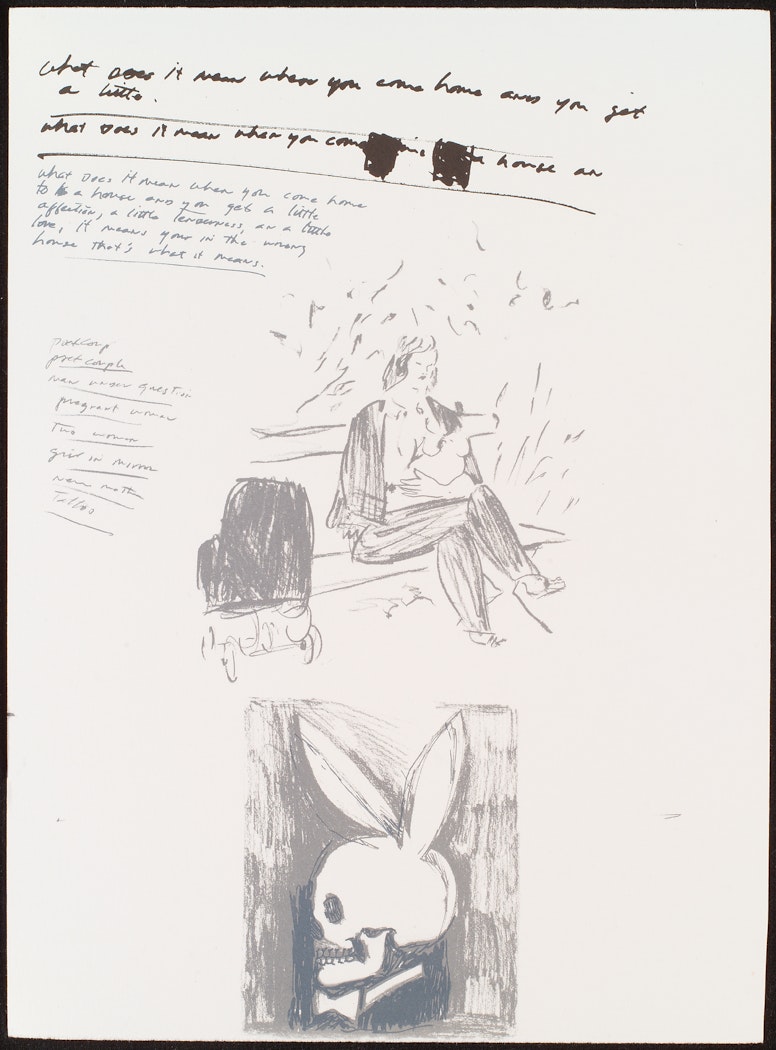 What Does it mean when you come home and you get
a little.
what Does it mean when you com house an
what Does it mean when you come home
to a house and you get a little
affection, a little Tenderness, an a little
love, it means your in the wrong
house that's what it means.
post coup
post couple
man under question
pregnant woman
Two woman
girl in mirror
new moth
Tattoo